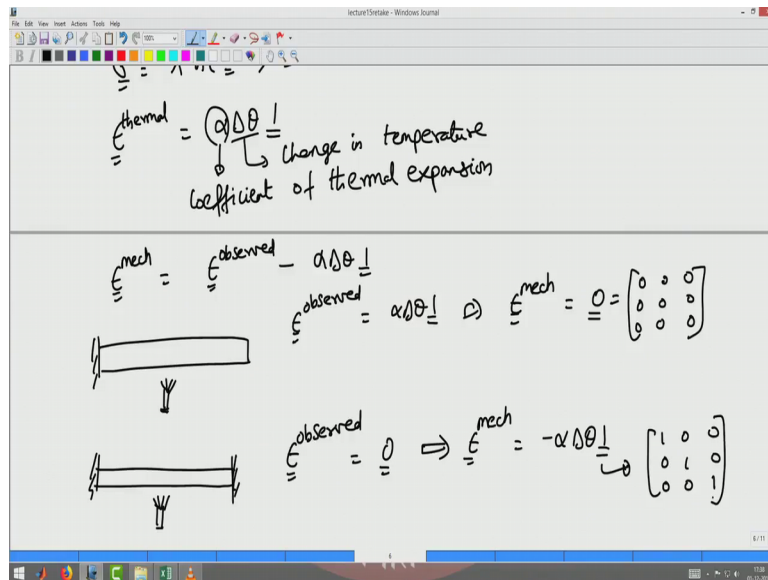 lecture15retake - Windows Journal
File Edit View Insert Actions Tools Help
100%
B I
ε^thermal = α Δθ 1
Change in temperature
Coefficient of thermal expansion
ε^mech = ε^observed - αΔθ 1
ε^observed = αΔθ 1 ⇒ ε^mech = 0 = [0 0 0
0 0 0
0 0 0]
ε^observed = 0 ⇒ ε^mech = -αΔθ 1 → [1 0 0
0 1 0
0 0 1]
6
6 / 11
17:08